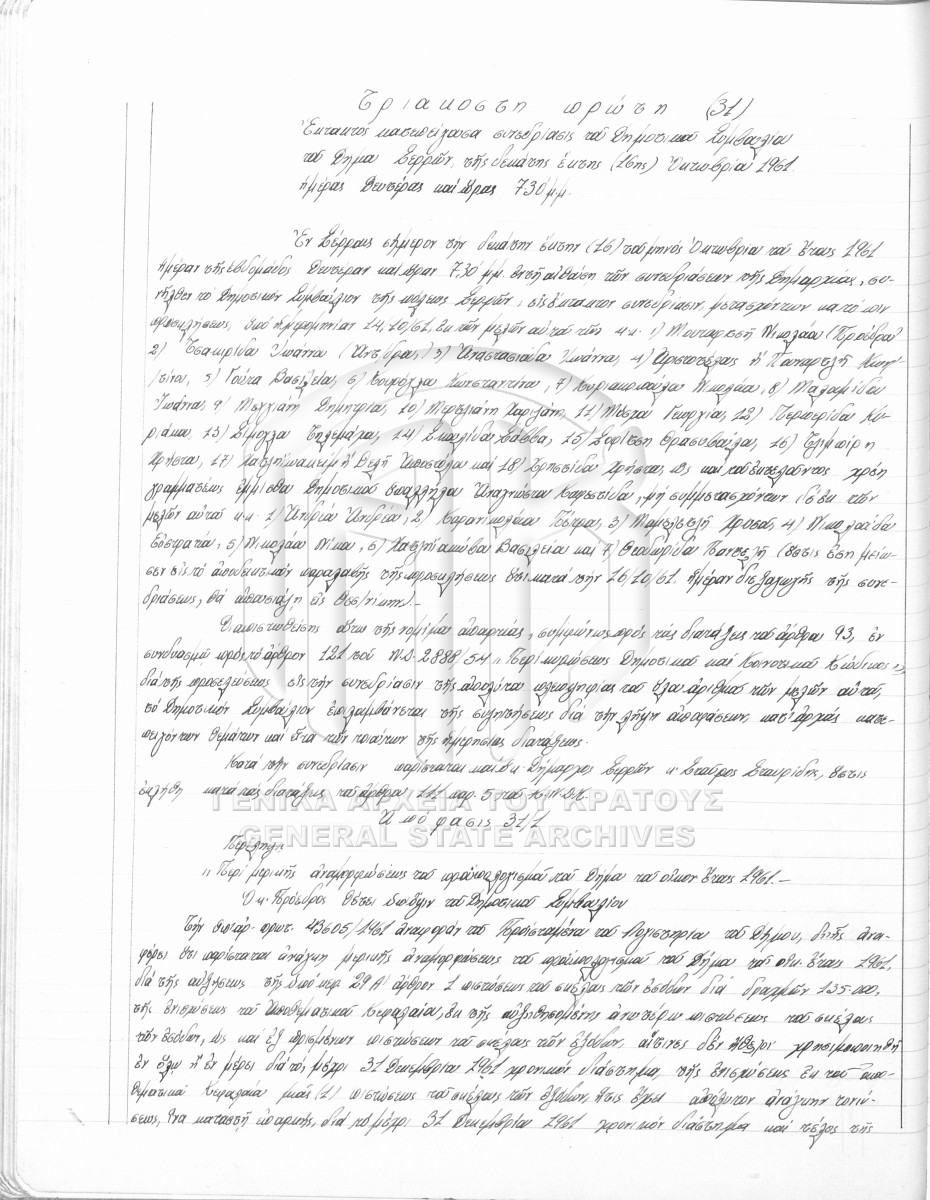 Τριακοστή πρώτη (31)
Ἔκτακτος κατεπείγουσα συνεδρίασις τοῦ Δημοτικοῦ Συμβουλίου
τοῦ Δήμου Σερρῶν, τῆς δεκάτης ἕκτης (16ης) Ὀκτωβρίου 1961
ἡμέρας Δευτέρας καί ὥρας 7.30 μ.μ.
Ἐν Σέρραις σήμερον τήν δεκάτην ἕκτην (16) τοῦ μηνός Ὀκτωβρίου τοῦ ἔτους 1961
ἡμέραν τῆς ἑβδομάδος Δευτέραν καί ὥραν 7.30 μ.μ. ἐν τῇ αἰθούσῃ τῶν συνεδριάσεων τῆς Δημαρχίας, συ-
νῆλθεν τό Δημοτικόν Συμβούλιον τῆς πόλεως Σερρῶν, εἰς ἔκτακτον συνεδρίασιν, μετασχόντων κατόπιν
προσκλήσεως, ὑπό ἡμερομηνίαν 14/10/61, ἐκ τῶν μελῶν αὐτοῦ τῶν κ.κ. 1) Μουταφτσῆ Νικολάου (Προέδρου)
2) Τσακιρίδου Ἰωάννου (Ἀντιπρ.), 3) Ἀναστασιάδου Ἰωάννου, 4) Ἀριστοτέλους ἤ Παπαρτελῆ Κων/
/τίνου, 5) Γούτα Βασιλείου, 6) Κωνσταντίνου, 7) Κυριακοπούλου Νικολάου, 8) Μαλαμίδου
Ἰωάννου, 9) Δημητρίου, 10) 11) Μπέτσου Γεωργίου, 12) Περπερίδου Κυ-
ριάκου, 13) Σίμογλου Τηλεμάχου, 14) Σκουλίδου Σάββα, 15) Σοφίτση Θρασυβούλου, 16) Τελιμπίρη
Χρήστου, 17) Χατζηϊωακείμ ἤ Δελῆ Ἀποστόλου καί 18) Χρηστίδου Χρήστου, ὡς καί τοῦ ἐκτελοῦντος χρέη
γραμματέως ἐμμίσθου Δημοτικοῦ ὑπαλλήλου Ἀναγνώστου, μή συμμετασχόντων δέ ἐκ τῶν
μελῶν αὐτοῦ κ.κ. 1) Ἀνδρέου Ἀνδρέου, 2) Καρανικολάου Πέτρου, 3) 4) Νικολαΐδου
Εὐστρατίου, 5) Νικολάου Νίκου, 6) Βασιλείου καί 7) Θεοδωρίδου Παντελῆ (ὅστις ἐσημείω-
σεν εἰς τό ἀποδεικτικόν παραλαβῆς τῆς προσκλήσεως ὅτι κατά τήν 16/10/61 ἡμέραν διεξαγωγῆς τῆς συνε-
δριάσεως, θά ἀπουσιάζῃ εἰς Θεσ/νίκην).-
Διαπιστωθείσης οὕτω τῆς νομίμου ἀπαρτίας, συμφώνως πρός τάς διατάξεις τοῦ ἄρθρου 93, ἐν
συνδυασμῷ πρός τό ἄρθρον 121 τοῦ Ν.Δ. 2888/54 „Περί κυρώσεως Δημοτικοῦ καί Κοινοτικοῦ Κώδικος„
διά τῆς προσελεύσεως εἰς τήν συνεδρίασιν τῆς ἀπολύτου πλειοψηφίας τοῦ ὅλου ἀριθμοῦ τῶν μελῶν αὐτοῦ,
τό Δημοτικόν Συμβούλιον ἐπιλαμβάνεται τῆς συζητήσεως διά τήν λῆψιν ἀποφάσεων, κατ' ἀρχάς κατε-
πειγόντων θεμάτων καί εἶτα τῶν τοιούτων τῆς ἡμερησίας διατάξεως.
Κατά τήν συνεδρίασιν παρίσταται καί ὁ κ. Δήμαρχος Σερρῶν κ. Σταῦρος Σταυρίδης, ὅστις
ἐκλήθη κατά τάς διατάξεις τοῦ ἄρθρου 111 παρ. 5 τοῦ Δ.Κ.
Ἀπόφασις 31/1
ΓΕΝΙΚΑ ΑΡΧΕΙΑ ΤΟΥ ΚΡΑΤΟΥΣ
GENERAL STATE ARCHIVES
Περίληψις
„Περί μερικῆς ἀναμορφώσεως τοῦ προϋπολογισμοῦ τοῦ Δήμου τοῦ οἰκον. ἔτους 1961.-
Ὁ κ. Πρόεδρος θέτει ὑπ' ὄψιν τοῦ Δημοτικοῦ Συμβουλίου
Τήν ὑπ' ἀρ. πρωτ. 43605/1961 ἀναφοράν τοῦ Προϊσταμένου τοῦ Λογιστηρίου τοῦ Δήμου, δι' ἧς ἀνα-
φέρει ὅτι παρίσταται ἀνάγκη μερικῆς ἀναμορφώσεως τοῦ προϋπολογισμοῦ τοῦ Δήμου τοῦ οἰκ. ἔτους 1961,
διά τῆς αὐξήσεως τῆς ὑπό κεφ. 29Α ἄρθρον 1 πιστώσεως τοῦ σκέλους τῶν ἐσόδων διά δραχμῶν 135.000,
τῆς ἐνισχύσεως τοῦ Ἀποθεματικοῦ Κεφαλαίου, ἐκ τῆς αὐξηθησομένης ἀνωτέρω πιστώσεως τοῦ σκέλους
τῶν ἐσόδων, ὡς καί ἐξ ὡρισμένων πιστώσεων τοῦ σκέλους τῶν ἐξόδων, αἵτινες δέν ἤθελον χρησιμοποιηθῆ
ἐν ὅλῳ ἤ ἐν μέρει διά τό μέχρι 31 Δεκεμβρίου 1961 χρονικόν διάστημα, τῆς ἐνισχύσεως ἐκ τοῦ ἀπο-
θεματικοῦ Κεφαλαίου μιᾶς (1) πιστώσεως τοῦ σκέλους τῶν ἐξόδων, ἥτις ἔχει ἀπόλυτον ἀνάγκην τονώ-
σεως, ἵνα καταστῇ ἐπαρκής, διά τό μέχρι 31 Δεκεμβρίου 1961 χρονικόν διάστημα καί τέλος τῆς